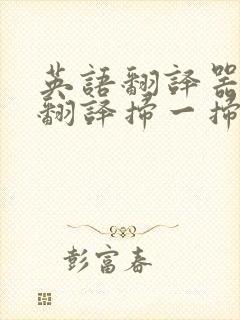 英語翻譯器
翻譯掃一掃
彭富春